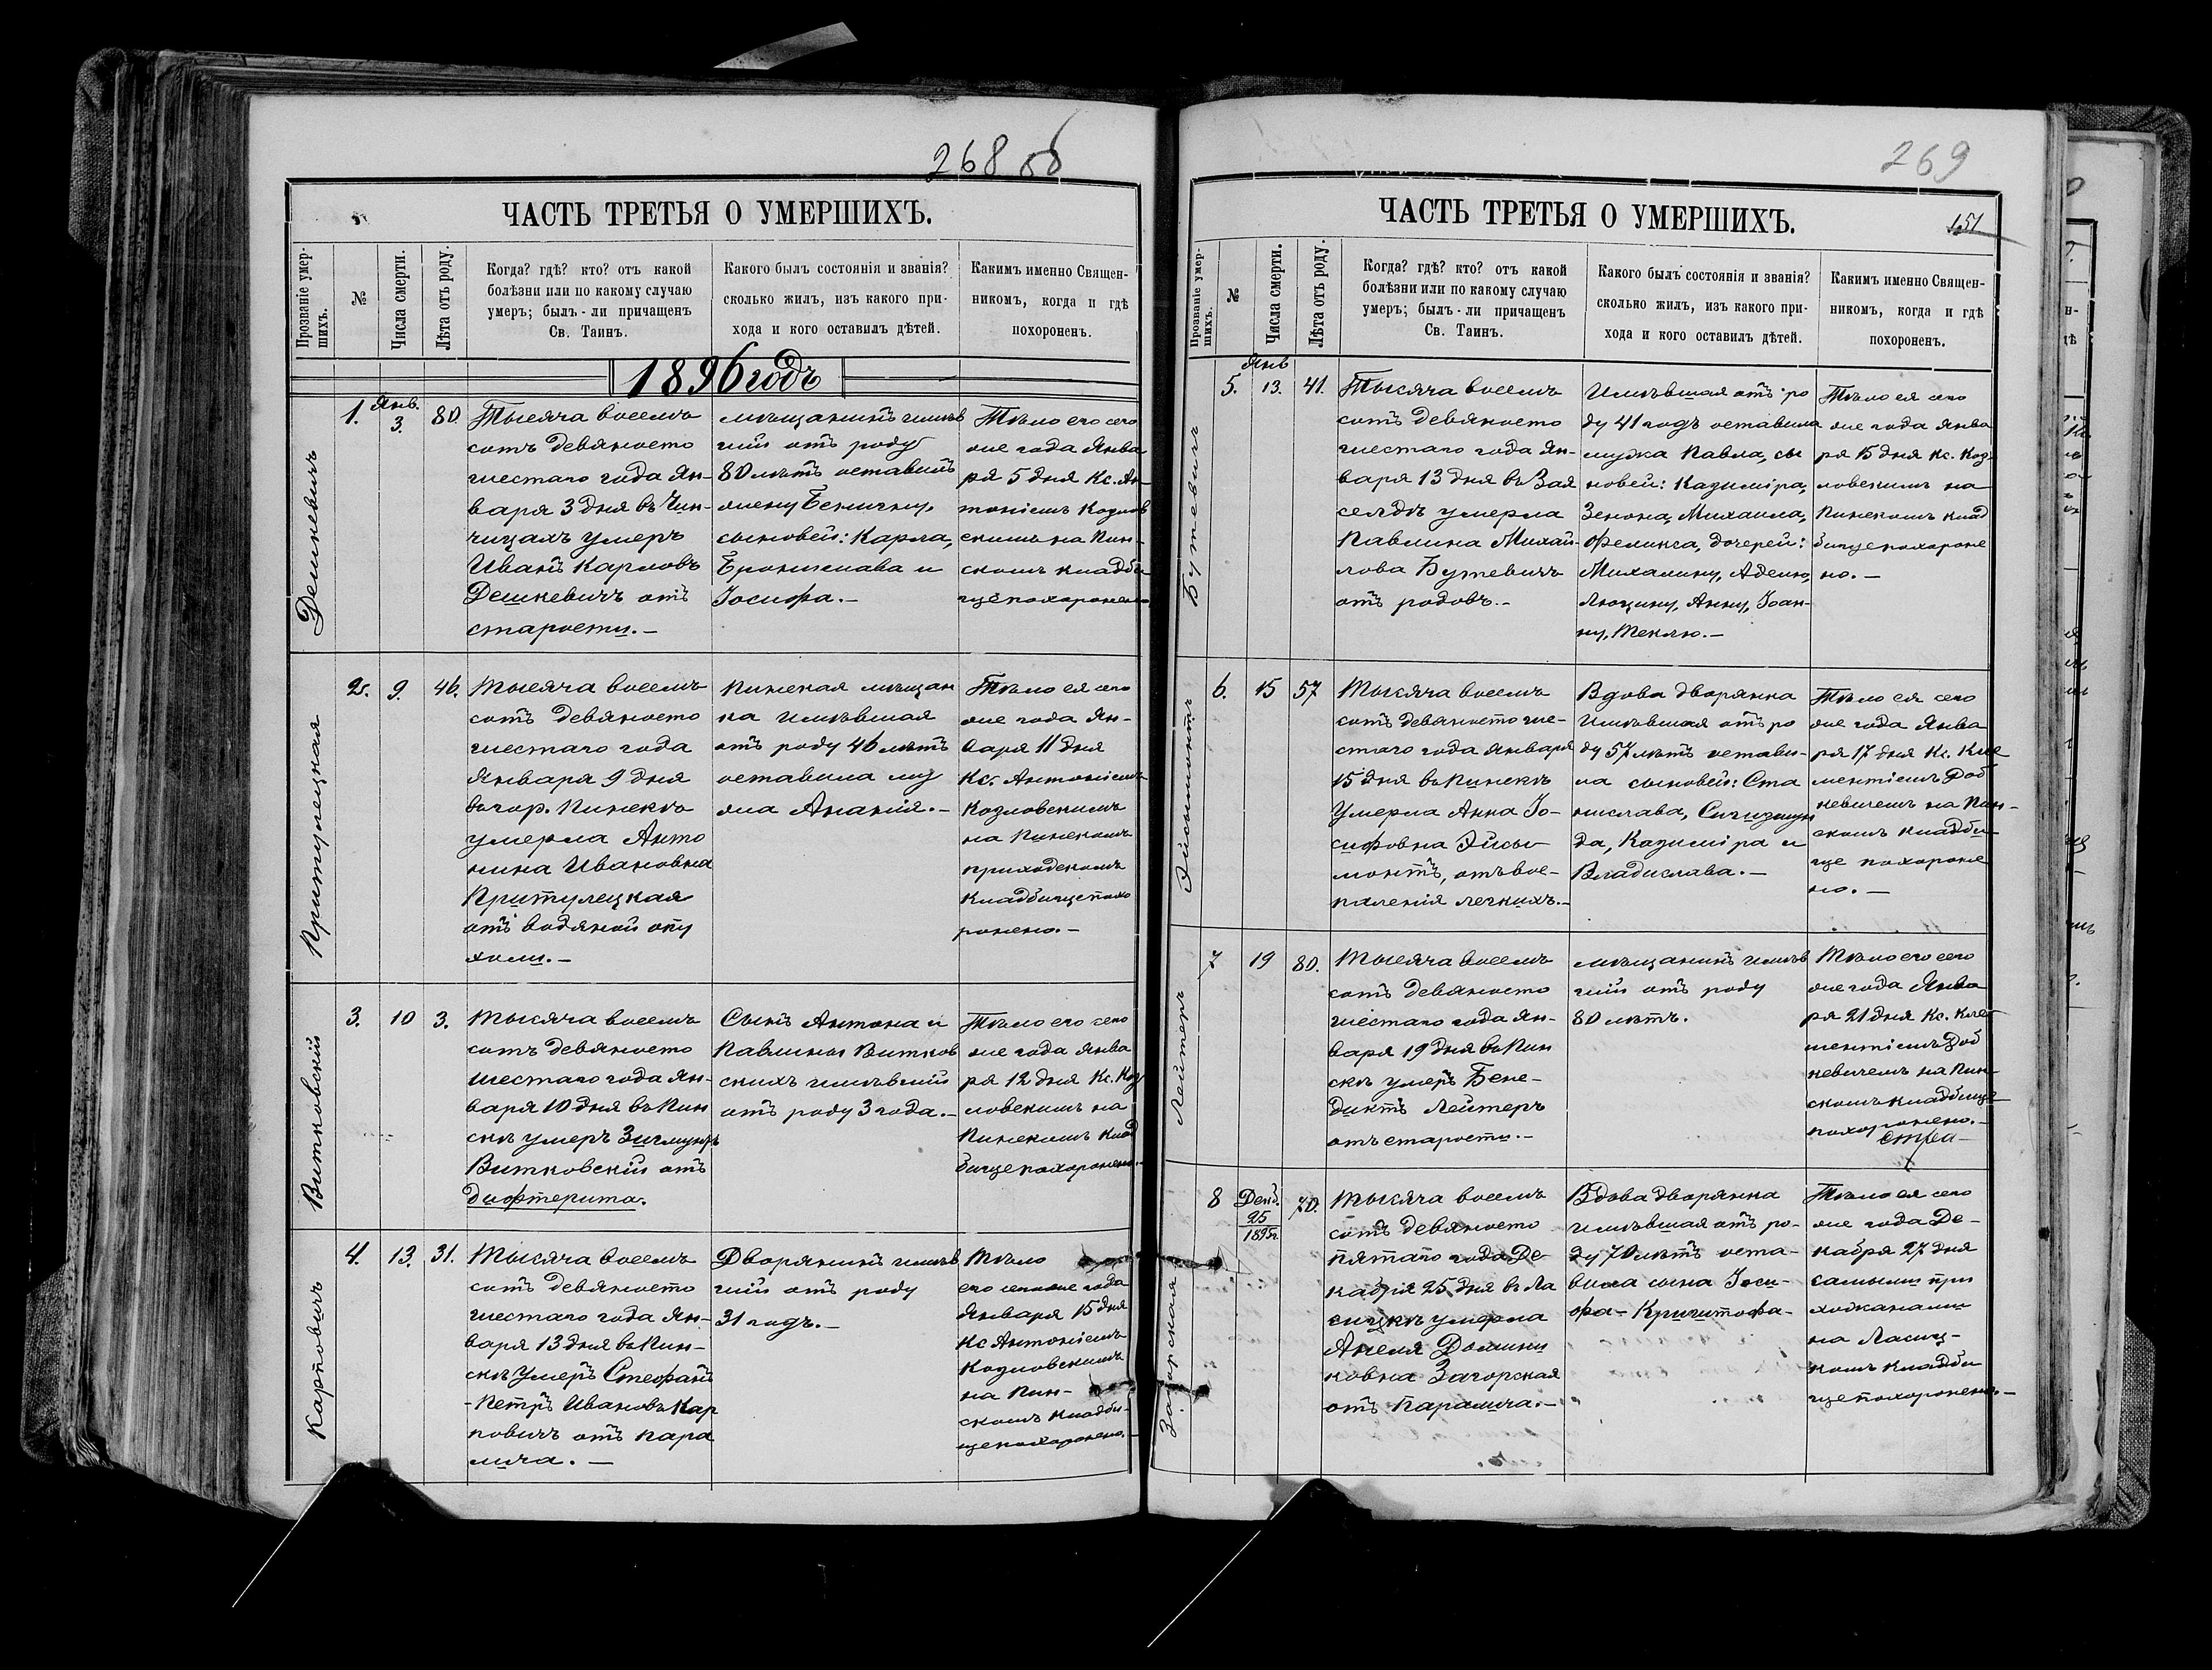 268 об
ЧАСТЬ ТРЕТЬЯ О УМЕРШИХЪ.
Прозваніе умер-
шихъ.
№
Числа смерти.
Лѣта отъ роду.
Когда? гдѣ? кто? отъ какой
болѣзни или по какому случаю
умеръ; былъ-ли причащенъ
Св. Таинъ.
Какого былъ состоянія и званія?
сколько жилъ, изъ какого при-
хода и кого оставилъ дѣтей.
Какимъ именно Священ-
никомъ, когда и гдѣ
похороненъ.
1896 годъ
Дешкевичъ
1.
Янв.
3.
80.
Тысяча восемь
сотъ девяносто
шестаго года Ян-
варя 3 дня въ Чин-
чицахъ умеръ
Иванъ Карловъ
Дешкевичъ отъ
старости.-
мѣщанинъ имѣв
шій отъ роду
80 лѣтъ оставилъ
жену Бенигну,
сыновей: Карла,
Бронислава и
Іосифа.-
Тѣло его сего
же года Янва
ря 5 дня Кс. Ан-
тоніемъ Козлов
скимъ на Пин-
скомъ кладби
щѣ похоронено
Притулецкая
2.
9.
46.
Тысяча восемь
сотъ девяносто
шестаго года
Января 9 дня
въ гор. Пинскѣ
умерла Анто
нина Ивановна
Притулецкая
отъ водяной опу
холи.-
Пинская мѣщан
ка имѣвшая
отъ роду 46 лѣтъ
оставила му
жа Ананія.-
Тѣло ея сего
же года Ян-
варя 11 дня
Кс. Антоніемъ
Козловскимъ
на Пинскомъ
приходскомъ
кладбищѣ похо
ронено.-
Витковскій
3.
10
3.
Тысяча восемь
сотъ девяносто
шестаго года Ян-
варя 10 дня въ Пин
скѣ умеръ Зигмундъ
Витковскій отъ
дифтерита.
Сынъ Антона и
Павлины Витков
скихъ имѣвшій
отъ роду 3 года.-
Тѣло его сего
же года Янва
ря 12 дня Кс. Коз
ловскимъ на
Пинскомъ клад
бищѣ похоронено.-
Карповичъ
4.
13.
31.
Тысяча восемь
сотъ девяносто
шестаго года Ян-
варя 13 дня въ Пин-
скѣ умеръ Стефанъ
-Петръ Ивановъ Кар
повичъ отъ пара
лича.-
Дворянинъ имѣв
шій отъ роду
31 годъ.-
Тѣло
его сего же года
Января 15 дня
Кс Антоніемъ
Козловскимъ
на Пин-
скомъ кладби-
щѣ похоронено.-
269
ЧАСТЬ ТРЕТЬЯ О УМЕРШИХЪ.
151
Прозваніе умер-
шихъ.
№
Числа смерти.
Лѣта отъ роду.
Когда? гдѣ? кто? отъ какой
болѣзни или по какому случаю
умеръ; былъ-ли причащенъ
Св. Таинъ.
Какого былъ состоянія и званія?
сколько жилъ, изъ какого при-
хода и кого оставилъ дѣтей.
Какимъ именно Священ-
никомъ, когда и гдѣ
похороненъ.
Бутевичъ
5.
Янв
13.
41.
Тысяча восемь
сотъ девяносто
шестаго года Ян-
варя 13 дня въ Зая
сельдѣ умерла
Павлина Михай-
лова Бутевичъ
отъ родовъ.-
Имѣвшая отъ ро
ду 41 годъ оставила
мужа Павла, сы
новей: Казиміра,
Зенона, Михаила,
Феликса, дочерей:
Михалину, Аделю,
Люцину, Анну, Іоан-
ну, Теклю.-
Тѣло ея сего
же года Янва
ря 15 дня Кс. Коз
ловскимъ на
Пинскомъ клад
бищѣ похороне
но.-
Эйсымонтъ
6.
15
57
Тысяча восемь
сотъ девяносто ше-
стаго года Января
15 дня въ Пинскѣ
умерла Анна Іо-
сифовна Эйсы-
монтъ, отъ вос-
паленія легкихъ.-
Вдова дворянка
имѣвшая отъ ро
ду 57 лѣтъ остави-
ла сыновей: Ста
нислава, Сигизмун
да, Казиміра и
Владислава.-
Тѣло ея сего
же года Янва
ря 17 дня Кс. Кле
ментіемъ Доб
кевичемъ на Пин-
скомъ кладби-
щѣ похороне
но.-
Лейтеръ
7
19
80.
Тысяча восемь
сотъ девяносто
шестаго года Ян-
варя 19 дня въ Пин
скѣ умеръ Бене-
диктъ Лейтеръ
отъ старости.-
мѣщанинъ имѣв
шій отъ роду
80 лѣтъ.
Тѣло его сего
же года Янва
ря 21 дня Кс. Кле-
ментіемъ Доб
кевичемъ на Пин-
скомъ кладбищѣ
похоронено.-
Загорская
8
Декб.
25
1895г
70.
Тысяча восемь
сотъ девяносто
пятаго года Де-
кабря 25 дня въ Ла
сицкѣ умерла
Анеля Домини
ковна Загорская
отъ паралича.-
Вдова дворянка
имѣвшая отъ ро-
ду 70 лѣтъ оста-
вила сына Іоси-
фа-Криштофа-
Тѣло ея сего
же года Де-
кабря 27 дня
самыми при
хожанами
на Ласиц-
комъ кладби
щѣ похоронено.-